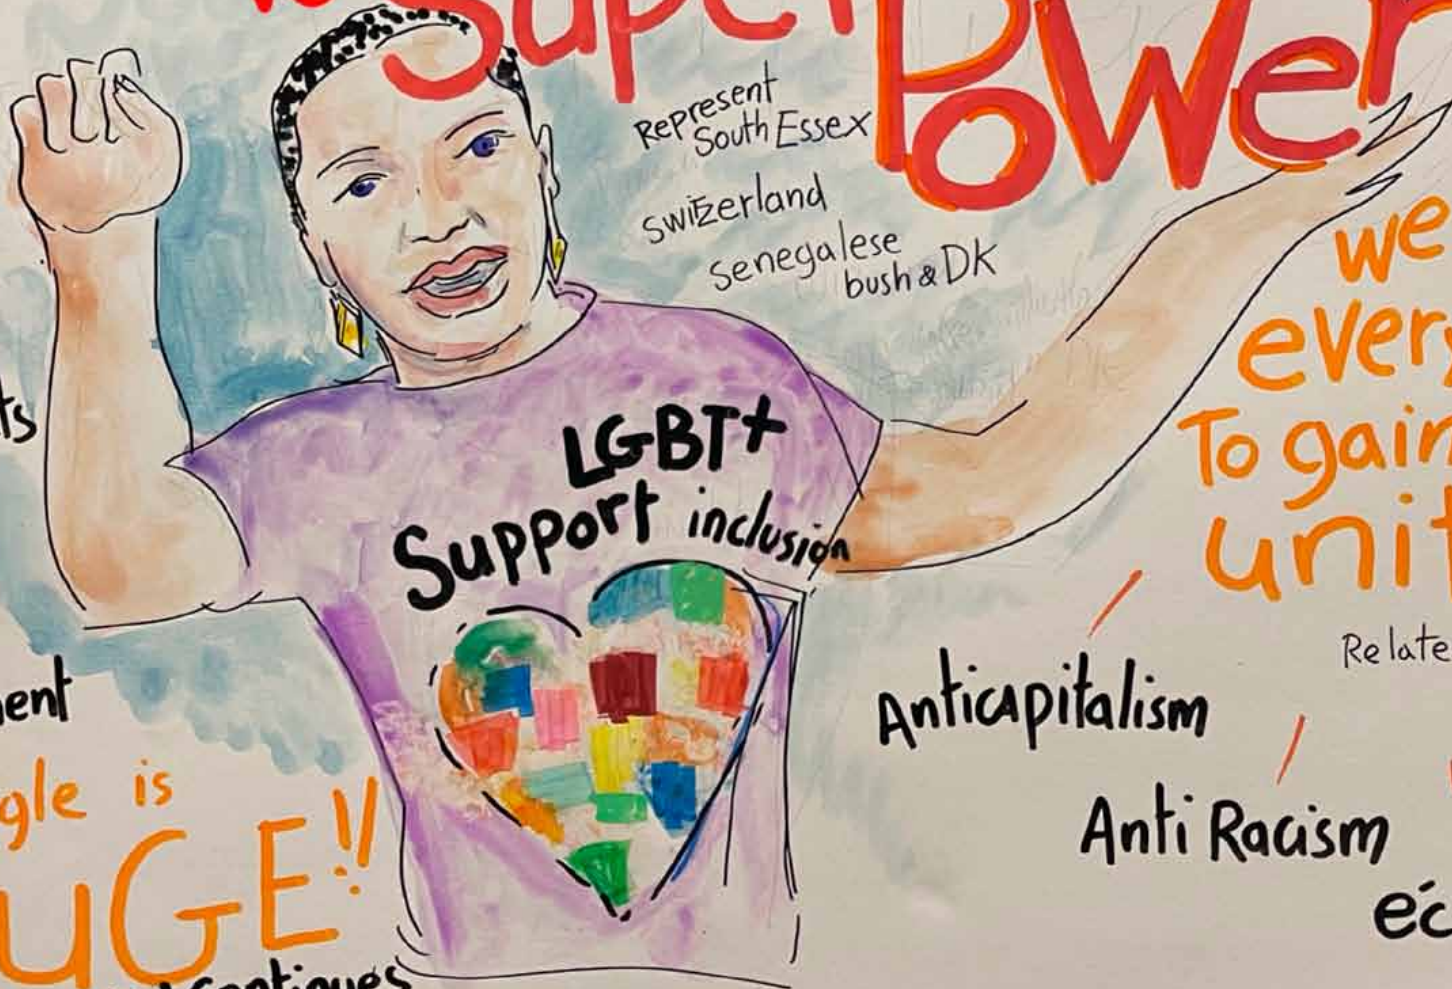 Super
Power
Represent
South Essex
Switzerland
Senegalese
bush & DK
we
every
To gain
LGBT+
Support inclusion
Relate
Anticapitalism
is
Anti Racism